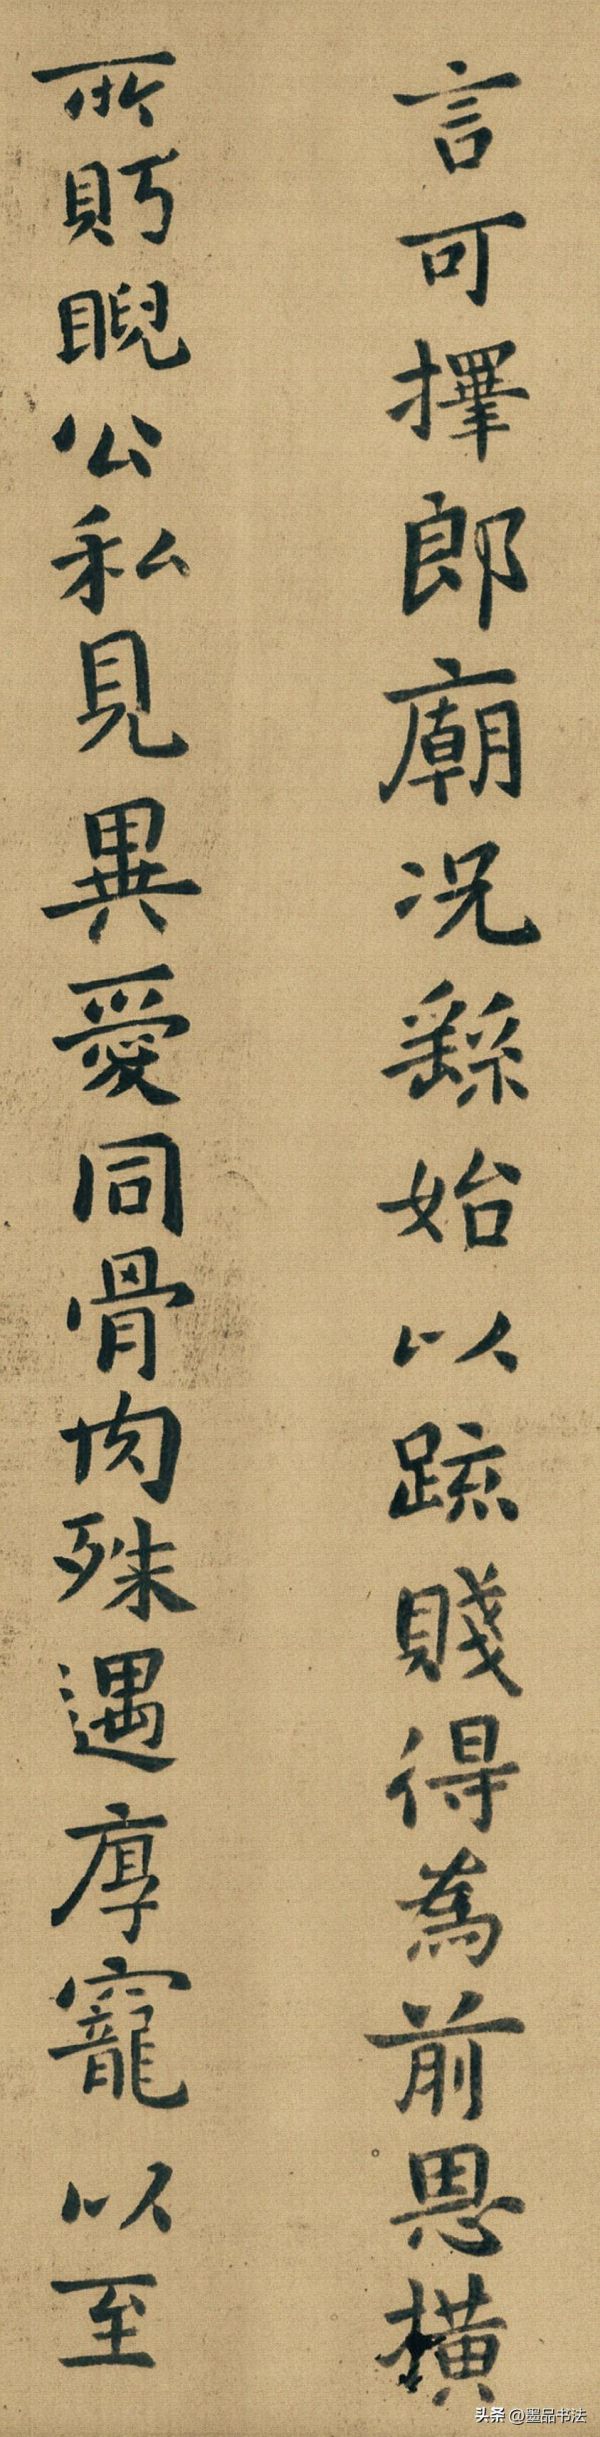 言可擇郎廟况繇始以疏賤得為前恩橫
所眄睨公私見異愛同骨肉殊遇厚寵以至
头条 @墨品书法